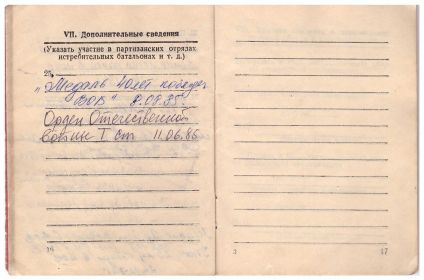 VII. Дополнительные сведения
(Указать участие в партизанских отрядах
истребительных батальонах и т. д.)
25.
„Медаль 40 лет победы
ВОВ" 8.04.85.
Орден Отечественной
войны I ст 11.06.86
16
3
17